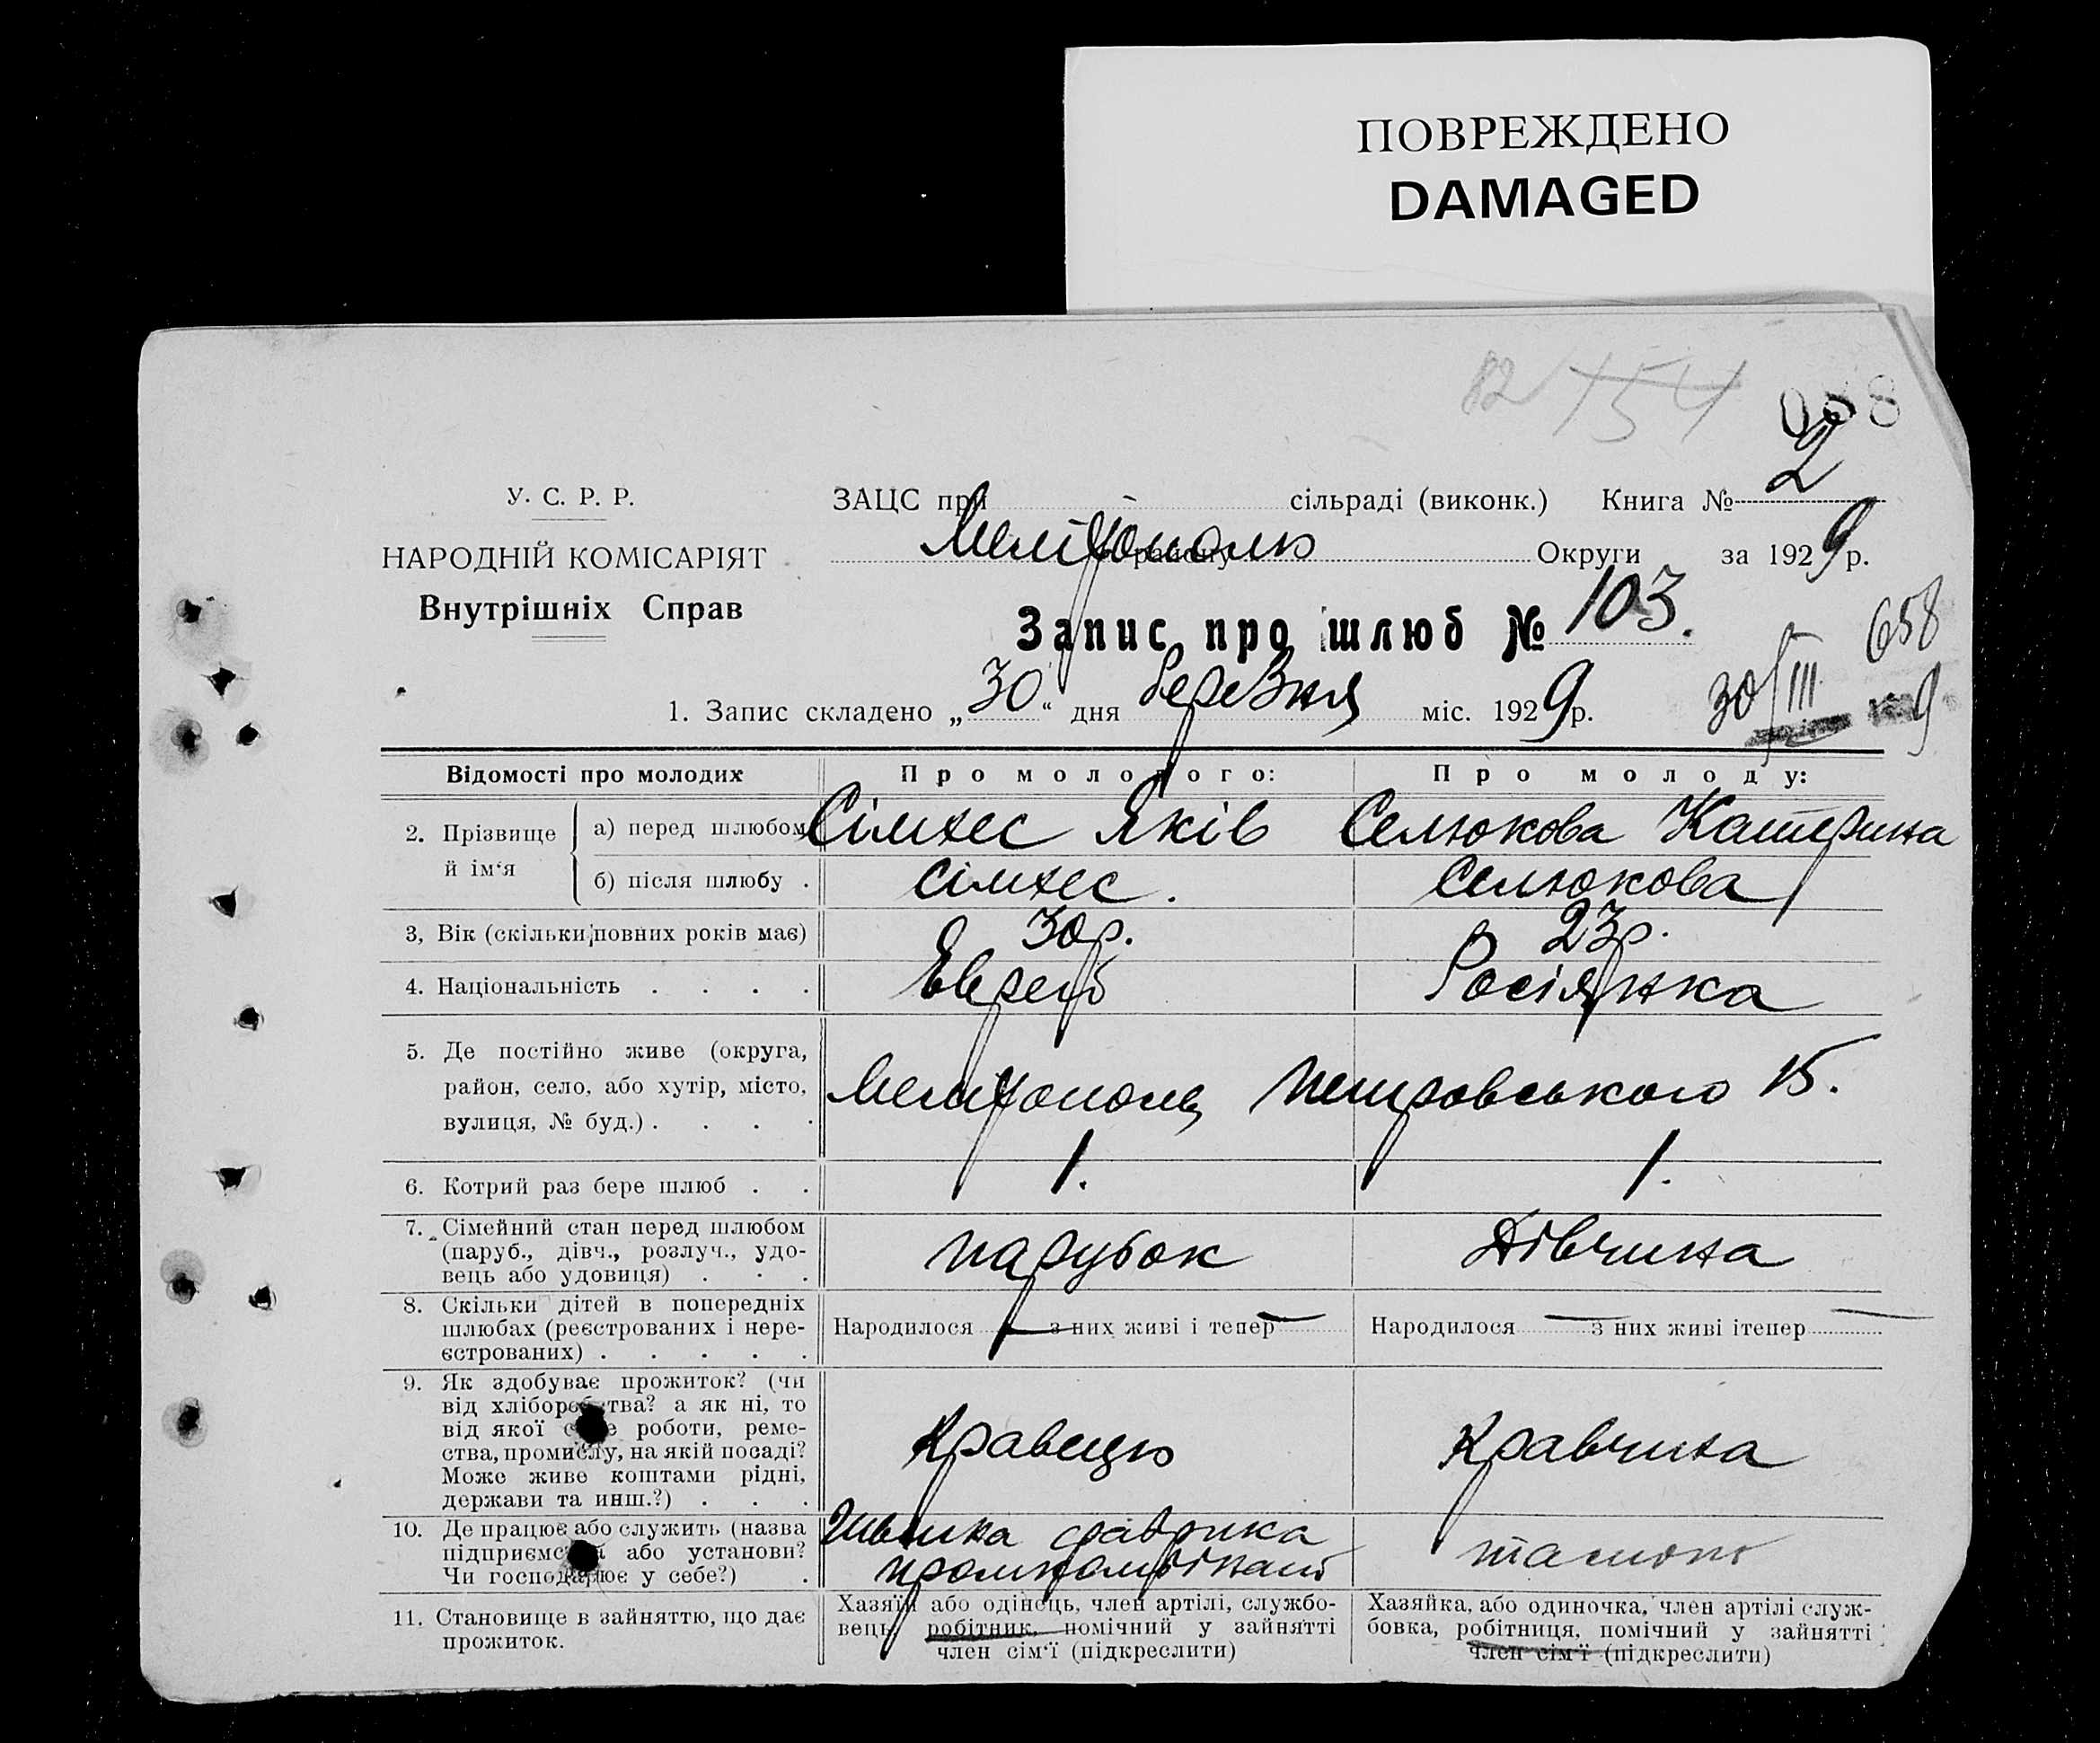 ПОВРЕЖДЕНО
DAMAGED
82 154
2
У. С. Р. Р.
ЗАЦС при сільраді (виконк.) Книга №
НАРОДНІЙ КОМІСАРІЯТ
Мелітополь району Округи за 1929 р.
Внутрішніх Справ
Запис про шлюб № 103.
658
1. Запис складено „30“ дня березня міс. 1929 р.
30/III 9
Відомості про молодих
Про молодого:
Про молоду:
2. Прізвище й ім‘я
а) перед шлюбом
Сімхес Яків
Селюкова Катерина
б) після шлюбу .
Сімхес.
Селюкова
3, Вік (скільки повних років має)
30р.
23р.
4. Національність . . . .
Еврей
Росіянка
5. Де постійно живе (округа,
район, село, або хутір, місто,
вулиця, № буд.) . . . .
Мелітополь Петровського 15.
6. Котрий раз бере шлюб . .
1.
1.
7. Сімейний стан перед шлюбом
(паруб., дівч., розлуч., удо-
вець або удовиця) . . .
парубок
Дівчина
8. Скільки дітей в попередніх
шлюбах (реєстрованих і нере-
єстрованих) . . . . .
Народилося — з них живі і тепер —
Народилося — з них живі ітепер —
9. Як здобуває прожиток? (чи
від хліборобства? а як ні, то
від якої роботи, реме-
ства, промислу, на якій посаді?
Може живе коштами рідні,
держави та инш.?) . . .
Кравець
Кравчина
10. Де працює або служить (назва
підприємства або установи?
Чи господарює у себе?) .
Швейка фабрика
промкомбінат
також
11. Становище в зайняттю, що дає
прожиток.
Хазяїн або одінець, член артілі, службо-
вець робітник, помічний у зайнятті
член сім‘ї (підкреслити)
Хазяйка, або одиночка, член артілі служ-
бовка, робітниця, помічний у зайнятті
член сім‘ї (підкреслити)